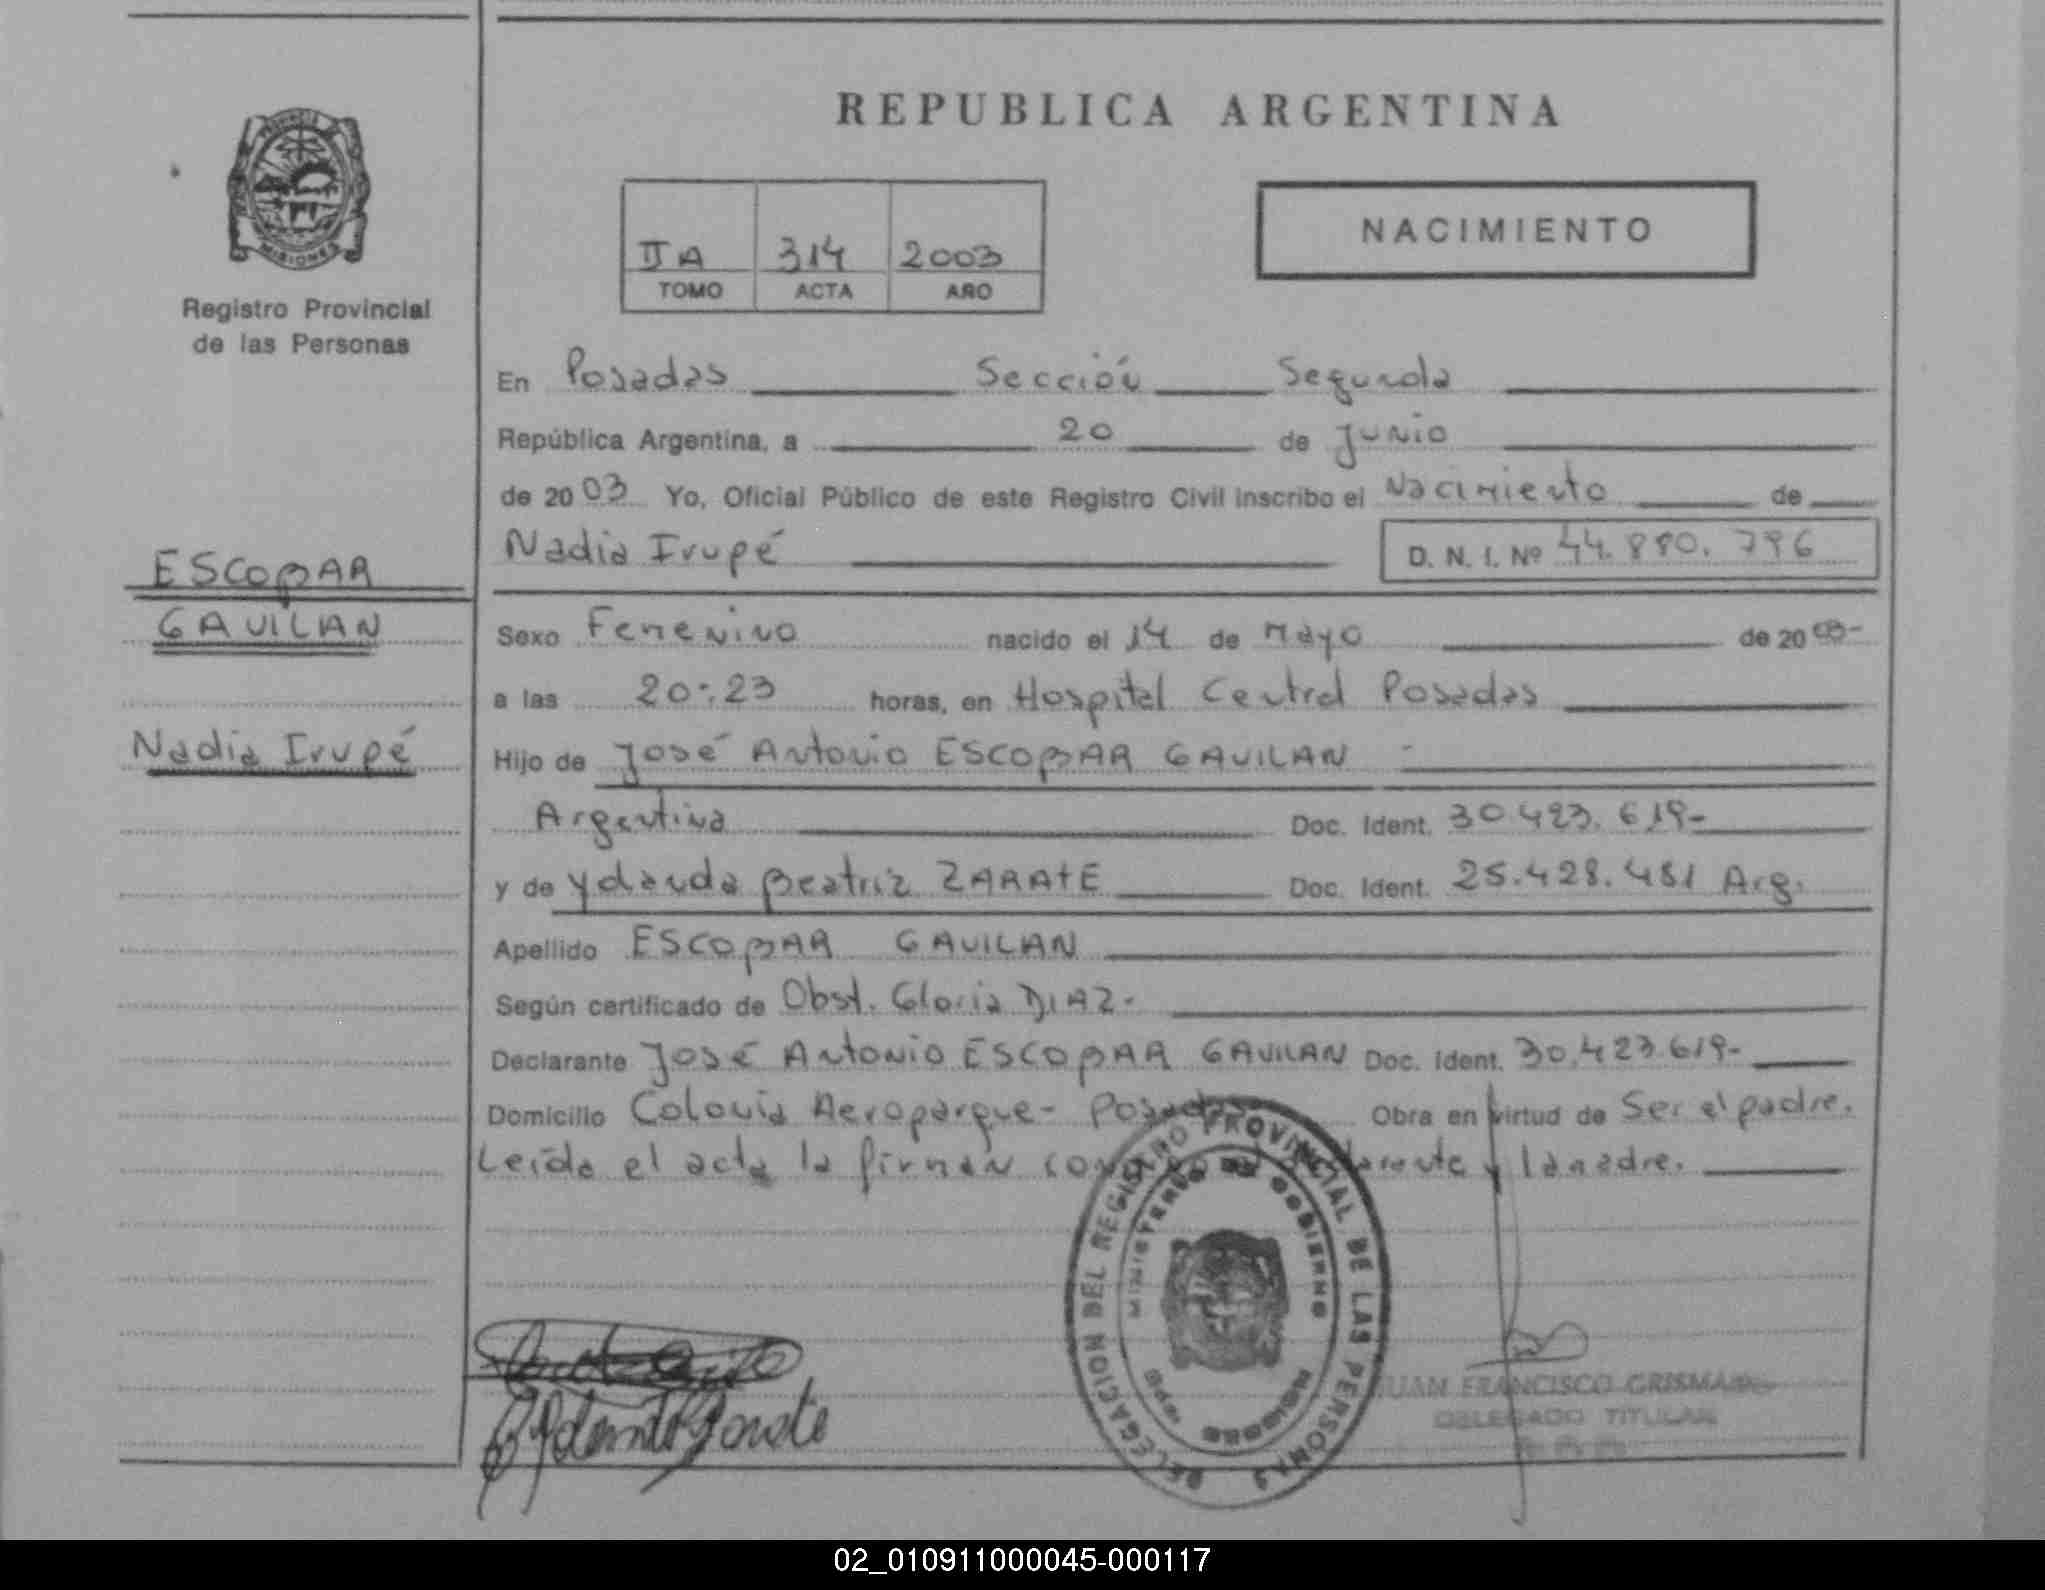 REPUBLICA ARGENTINA
PROVINCIA DE
MISIONES
Registro Provincial
de las Personas
IIA 314 2003
TOMO ACTA AÑO
NACIMIENTO
En Posadas Sección Segunda
República Argentina, a 20 de Junio
de 2003 Yo, Oficial Público de este Registro Civil inscribo el Nacimiento de
Nadia Irupé D. N. I. Nº 44.880.796
ESCOBAR
GAVILAN
Nadia Irupé
Sexo Femenino nacido el 14 de Mayo de 2003-
a las 20:23 horas, en Hospital Central Posadas
Hijo de José Antonio ESCOBAR GAVILAN -
Argentina Doc. Ident. 30.423.619-
y de Yolanda Beatriz ZARATE Doc. Ident. 25.428.481 Arg.
Apellido ESCOBAR GAVILAN
Según certificado de Obst. Gloria DIAZ-
Declarante José Antonio ESCOBAR GAVILAN Doc. Ident. 30.423.619-
Domicilio Colonia Aeroparque- Posadas Obra en virtud de Ser el padre.
Leída el acta la firman y la madre.
DELEGACION DEL REGISTRO PROVINCIAL DE LAS PERSONAS
MINISTERIO DE GOBIERNO
MISIONES
JUAN FRANCISCO
DELEGADO TITULAR
02_010911000045-000117